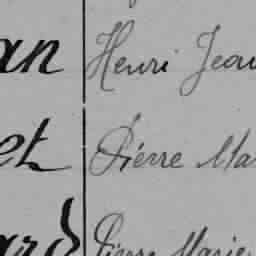 an Henri Jean
et Pierre Ma
ard Pierre Marie